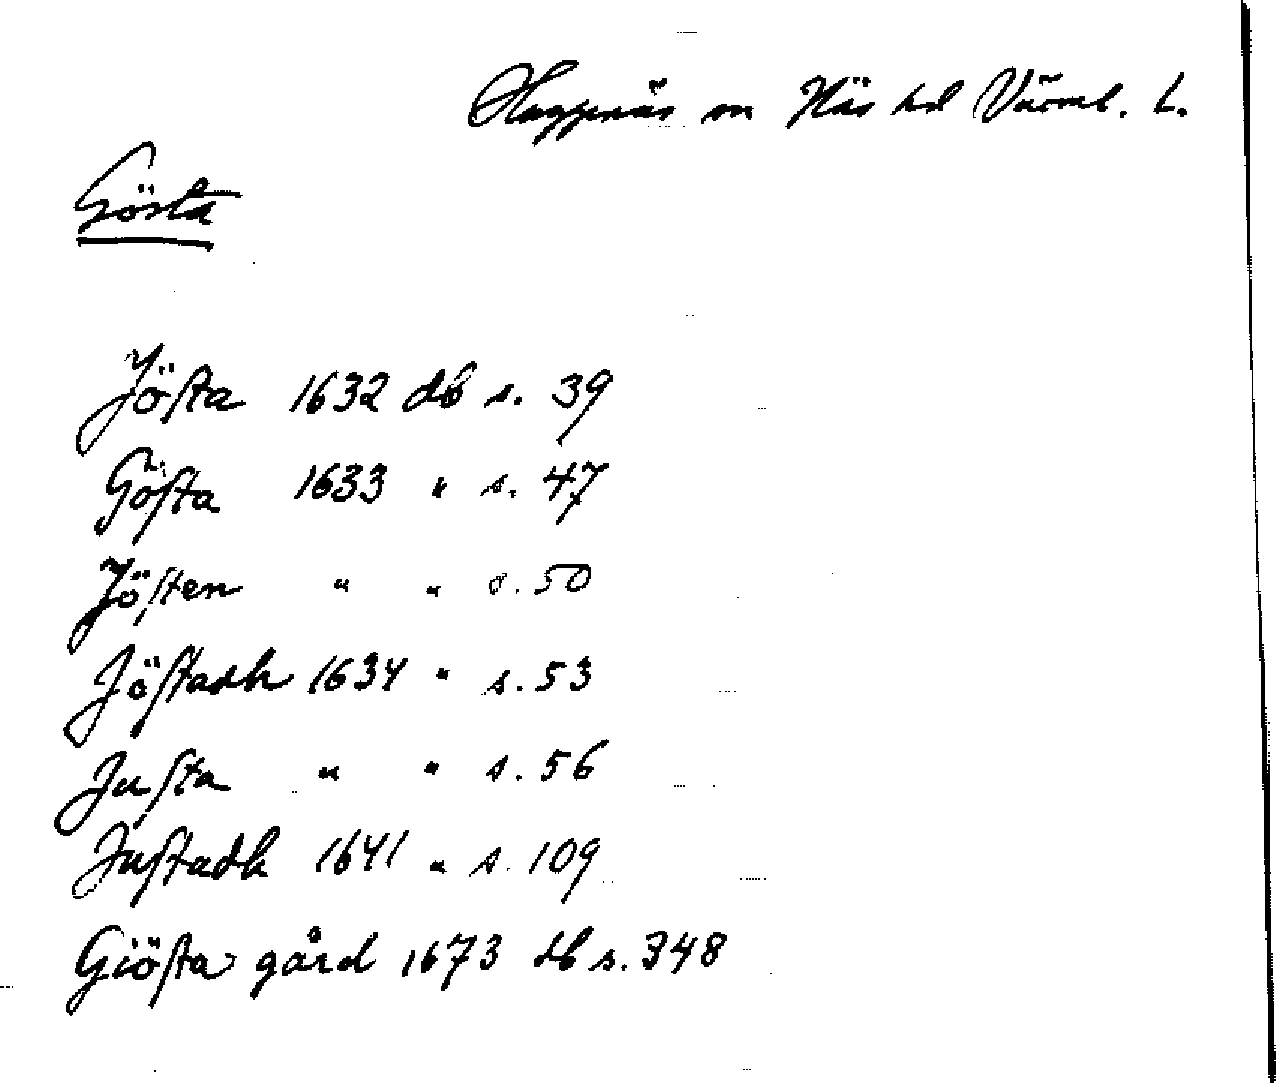 Huggenäs sn Näs hd Värml. L.
Gösta
Jösta 1632 db s. 39
Gösta 1633 " s. 47
Jösten " " s. 50
Jöstadh 1634 " s. 53
Justa " " s. 56
Justadh 1641 " s. 109
Giösta gård 1673 db s. 348